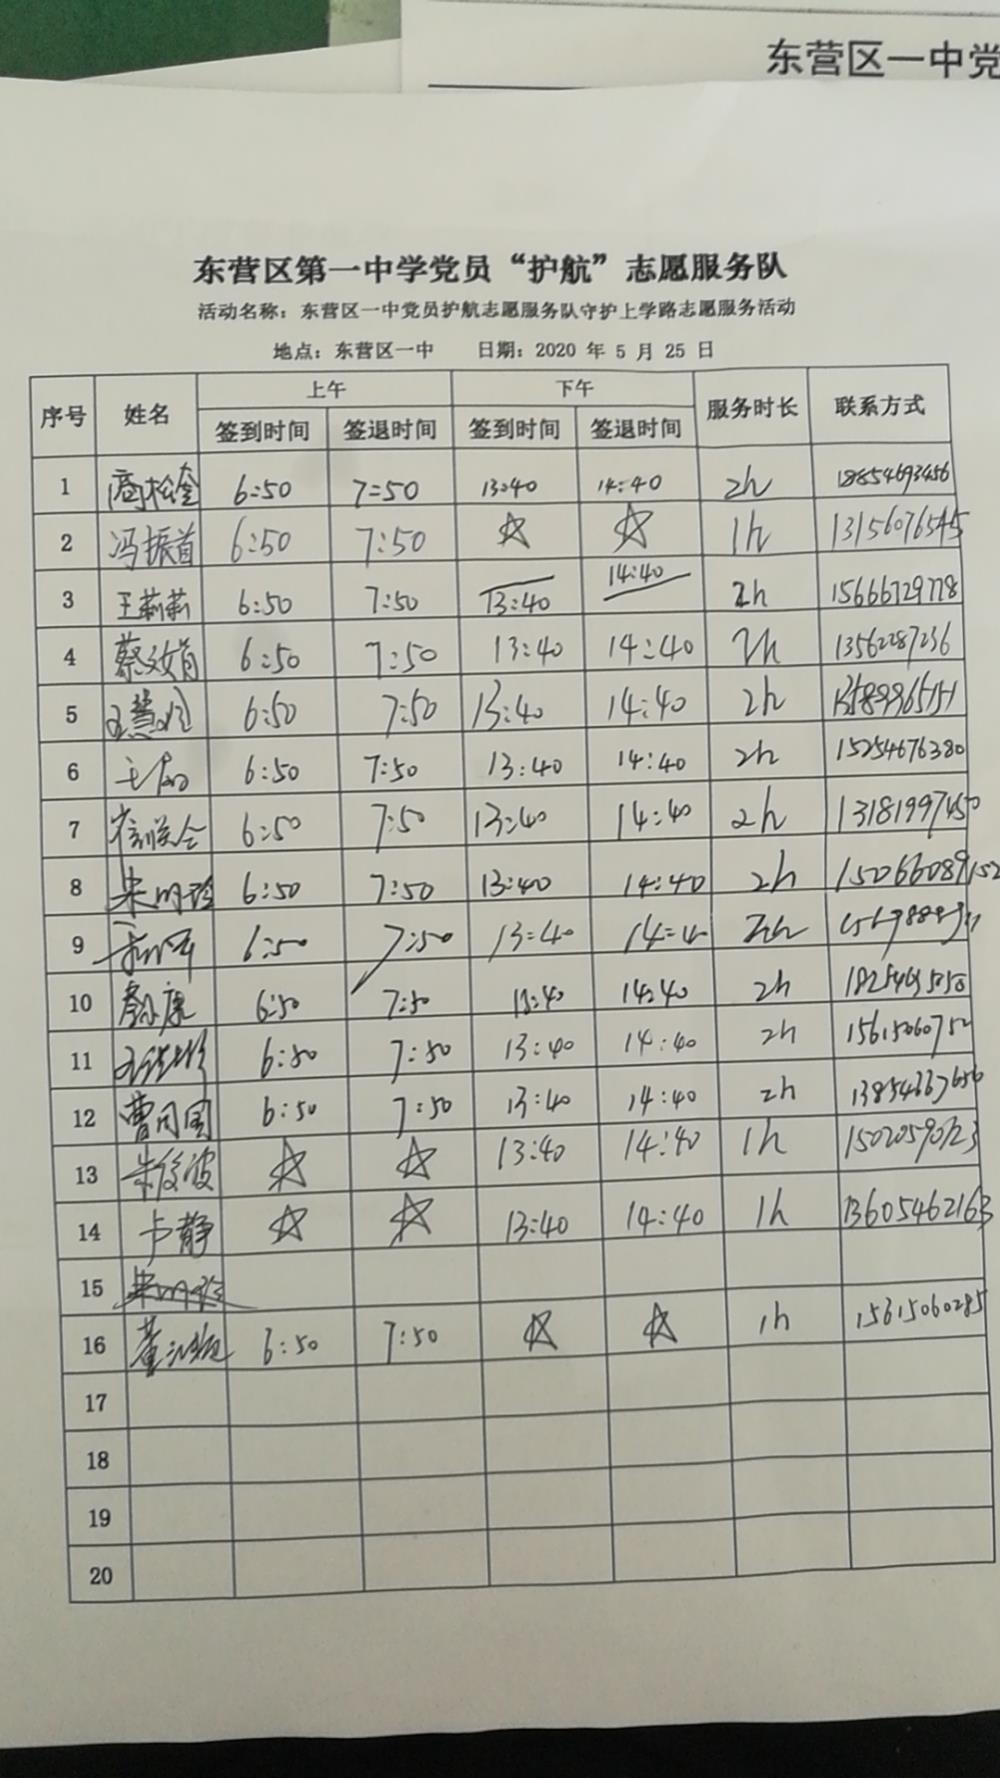 东营区一中党
东营区第一中学党员“护航”志愿服务队
活动名称：东营区一中党员护航志愿服务队守护上学路志愿服务活动
地点：东营区一中 日期：2020 年 5 月 25 日
序号 姓名 上午 下午 服务时长 联系方式
签到时间 签退时间 签到时间 签退时间
1 商松奎 6:50 7:50 13:40 14:40 2h 18854693456
2 冯振首 6:50 7:50 ☆ ☆ 1h 13156076545
3 王莉莉 6:50 7:50 13:40 14:40 2h 15666729778
4 蔡文娟 6:50 7:50 13:40 14:40 2h 13562287236
5 6:50 7:50 13:40 14:40 2h
6 6:50 7:50 13:40 14:40 2h 15254676380
7 6:50 7:50 13:40 14:40 2h 13181997450
8 朱明珍 6:50 7:50 13:40 14:40 2h 15066089152
9 6:50 7:50 13:40 14:40 2h
10 6:50 7:50 13:40 14:40 2h
11 6:50 7:50 13:40 14:40 2h
12 曹同国 6:50 7:50 13:40 14:40 2h
13 朱俊波 ☆ ☆ 13:40 14:40 1h 15020590723
14 卢静 ☆ ☆ 13:40 14:40 1h 13605462163
15
16 6:50 7:50 ☆ ☆ 1h 15615060285
17
18
19
20